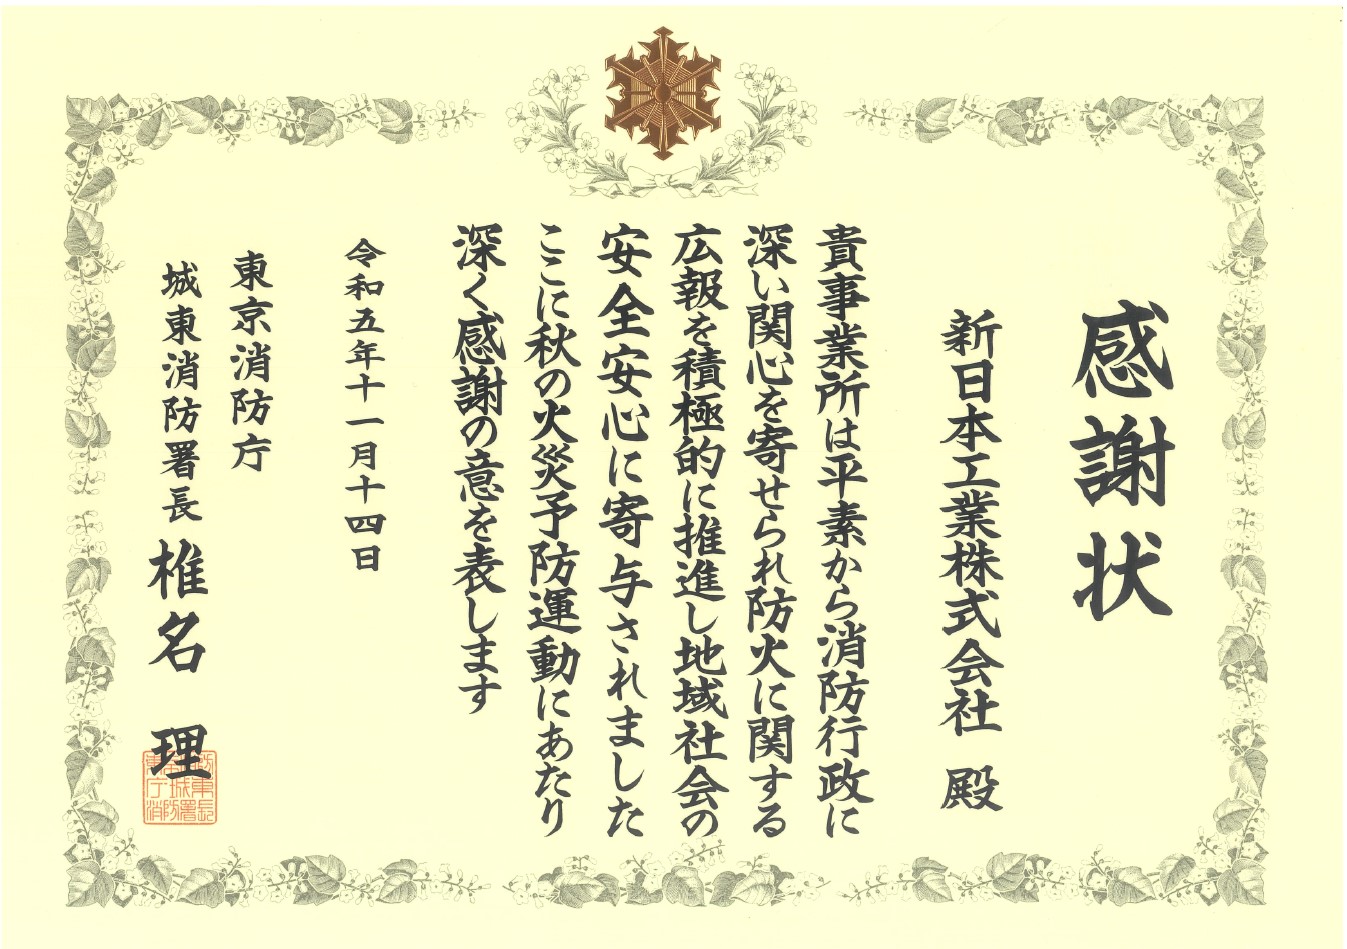 感謝状
新日本工業株式会社 殿
貴事業所は平素から消防行政に
深い関心を寄せられ防火に関する
広報を積極的に推進し地域社会の
安全安心に寄与されました
ここに秋の火災予防運動にあたり
深く感謝の意を表します
令和五年十一月十四日
東京消防庁
城東消防署長 椎名 理